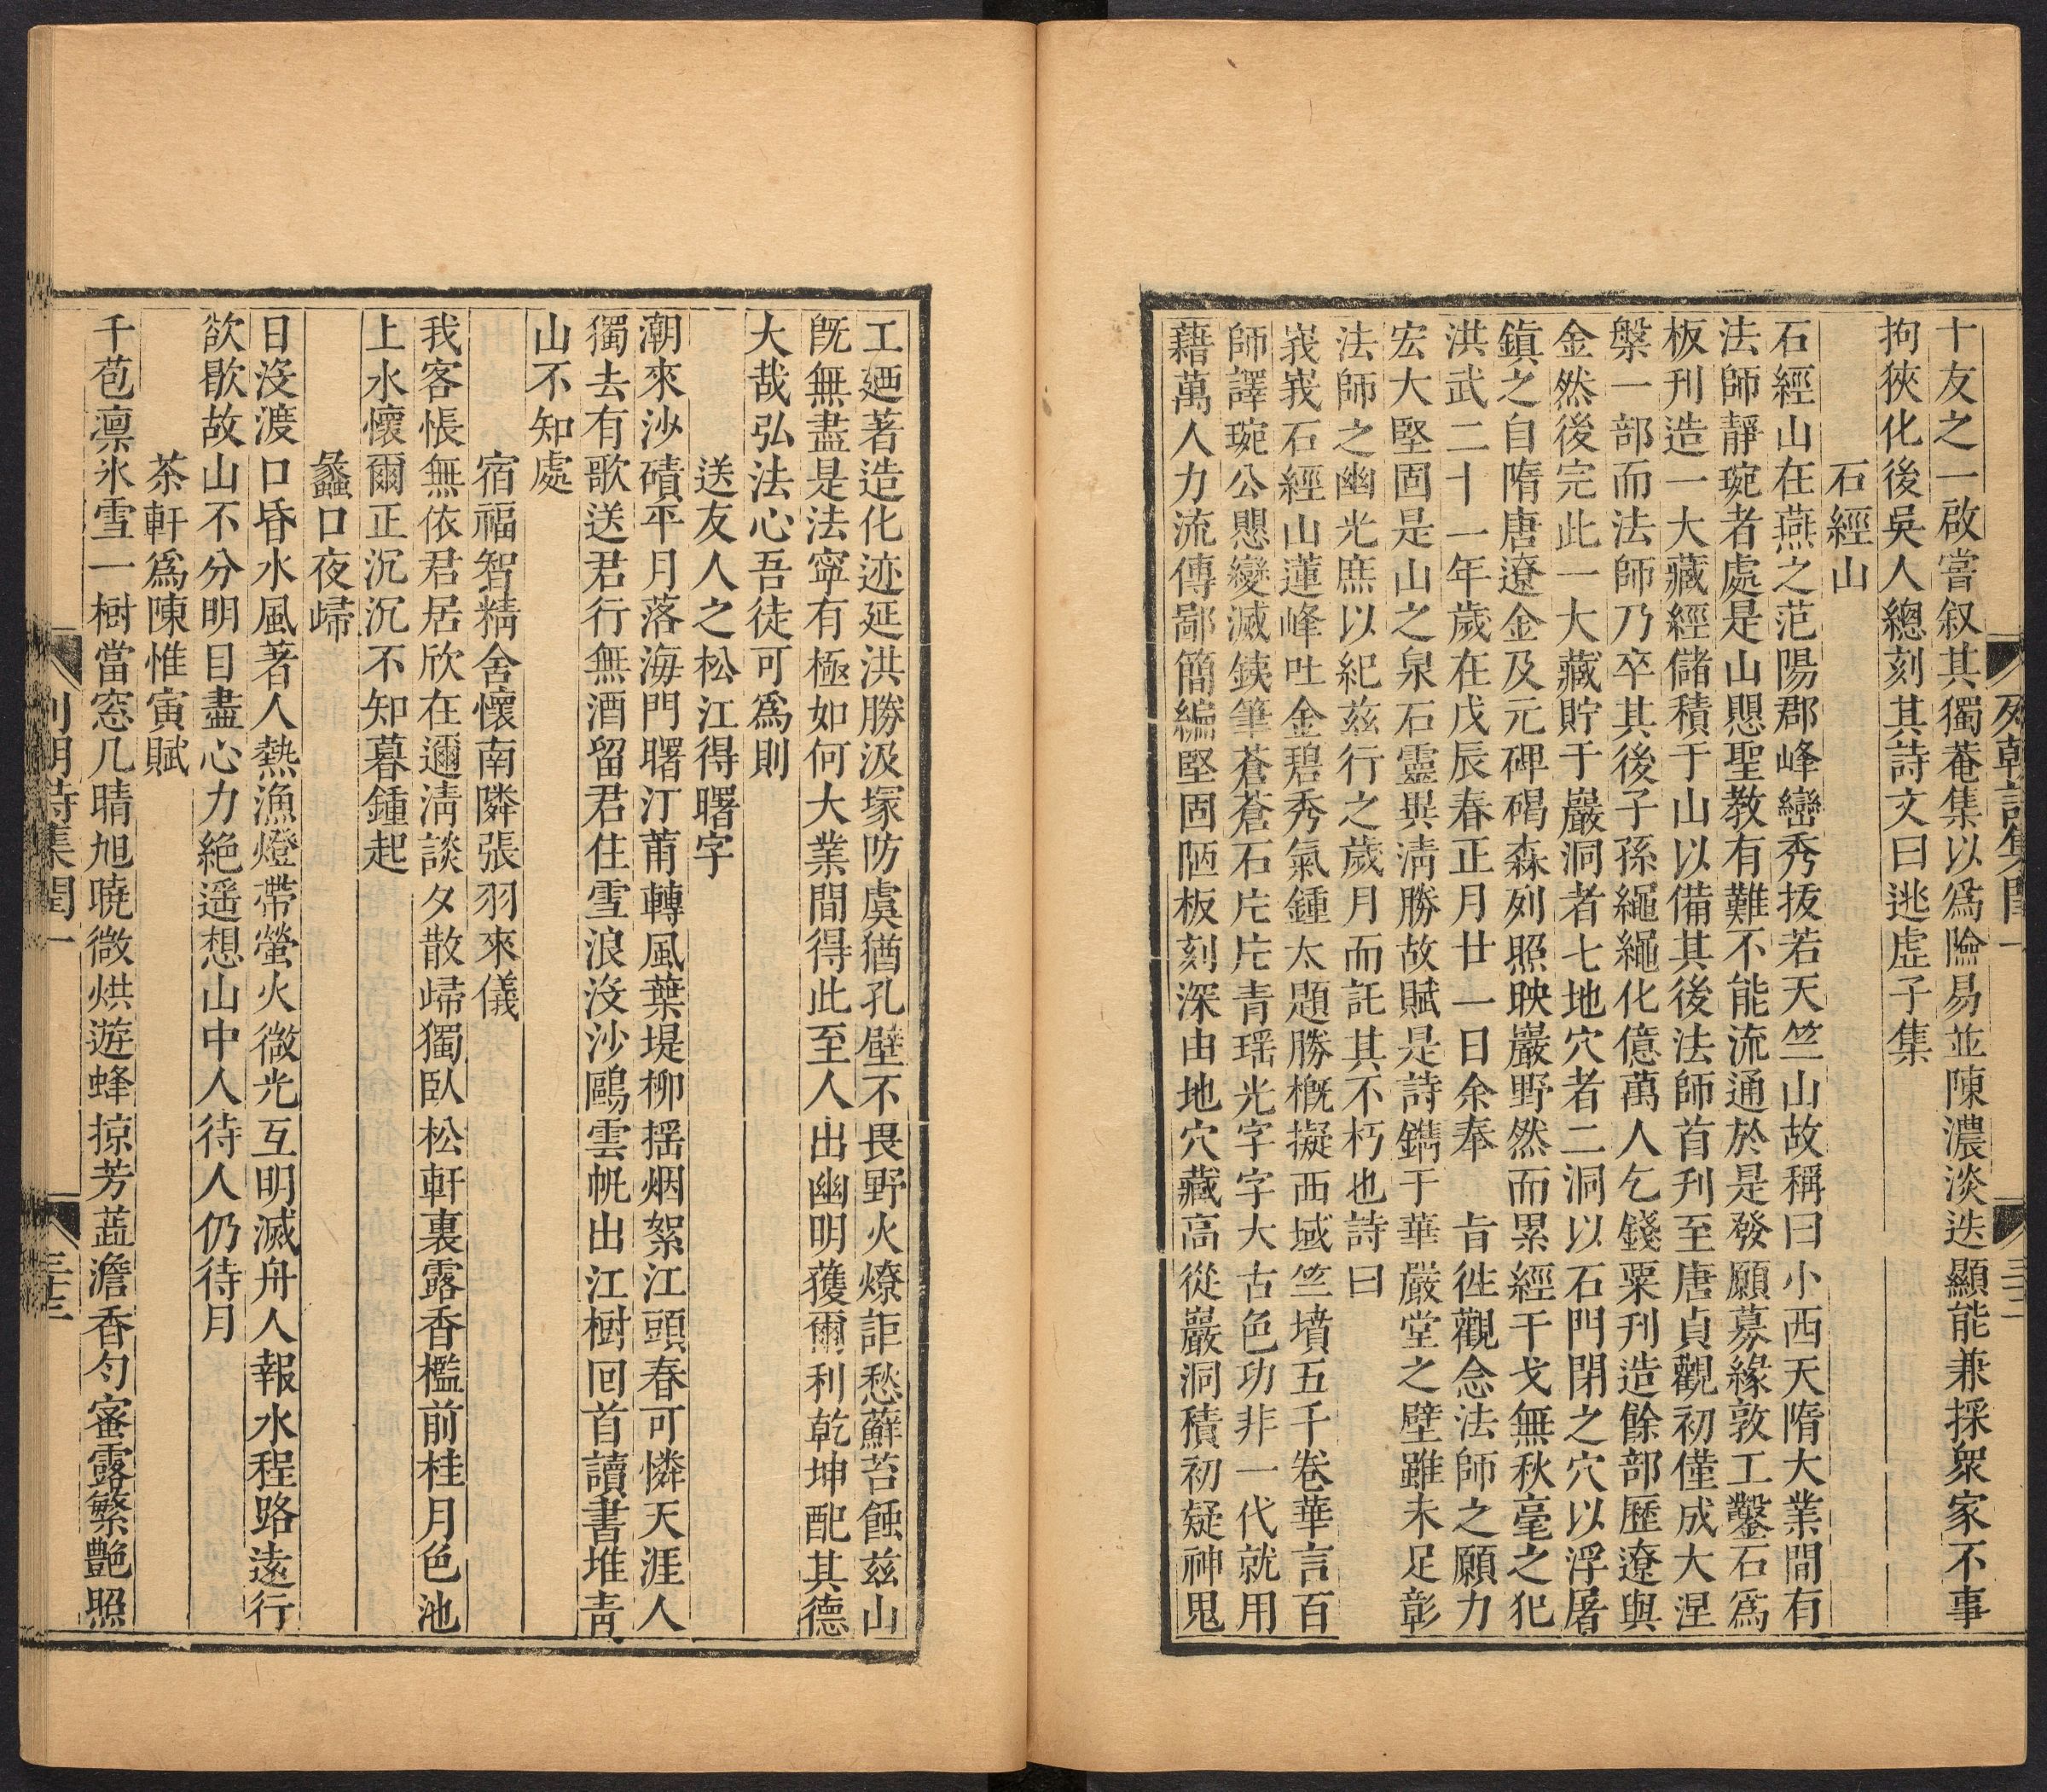 列朝詩集閏一
三十二
十友之一啟嘗叙其獨菴集以爲險易並陳濃淡迭顯能兼採衆家不事
拘狹化後吳人總刻其詩文曰逃虛子集
石經山
石經山在燕之范陽郡峰巒秀拔若天竺山故稱曰小西天隋大業間有
法師靜琬者處是山思聖教有難不能流通於是發願募緣敦工鑿石爲
板刊造一大藏經儲積于山以備其後法師首刊至唐貞觀初僅成大涅
槃一部而法師乃卒其後子孫繩繩化億萬人乞錢粟刊造餘部歷遼與
金然後完此一大藏貯于巖洞者七地穴者二洞以石門閉之穴以浮屠
鎮之自隋唐遼金及元碑碣森列照映巖野然而累經干戈無秋毫之犯
洪武二十一年歲在戊辰春正月廿一日余奉　旨徃觀念法師之願力
宏大堅固是山之泉石靈與淸勝故賦是詩鐫于華嚴堂之壁雖未足彰
法師之幽光庶以紀兹行之歲月而託其不朽也詩曰
峩峩石經山蓮峰吐金碧秀氣鍾太題勝概擬西域竺墳五千卷華言百
師譯琬公思變滅鋟筆蒼蒼石片片青瑶光字字大古色功非一代就用
藉萬人力流傳鄙簡編堅固陋板刻深由地穴藏高從巖洞積初疑神鬼
工廼著造化迹延洪勝汲塚防虞猶孔壁不畏野火燎詎愁蘚苔蝕兹山
旣無盡是法寧有極如何大業間得此至人出幽明獲爾利乾坤配其德
大哉弘法心吾徒可爲則
送友人之松江得曙字
潮來沙磧平月落海門曙汀莆轉風葉堤柳揺烟絮江頭春可憐天涯人
獨去有歌送君行無酒留君住雪浪沒沙鷗雲帆出江樹回首讀書堆靑
山不知處
宿福智精舍懷南隣張羽來儀
我客悵無依君居欣在邇淸談夕散歸獨臥松軒裏露香檻前桂月色池
上水懷爾正沉沉不知暮鍾起
蠡口夜歸
日沒渡口昏水風著人熱漁燈帶螢火微光互明滅舟人報水程路遠行
欲歇故山不分明目盡心力絶遥想山中人待人仍待月
茶軒爲陳惟寅賦
千苞凛氷雪一樹當窓几晴旭曉微烘遊蜂掠芳蕋澹香勻蜜露繁艷照
列朝詩集閏一
三十三